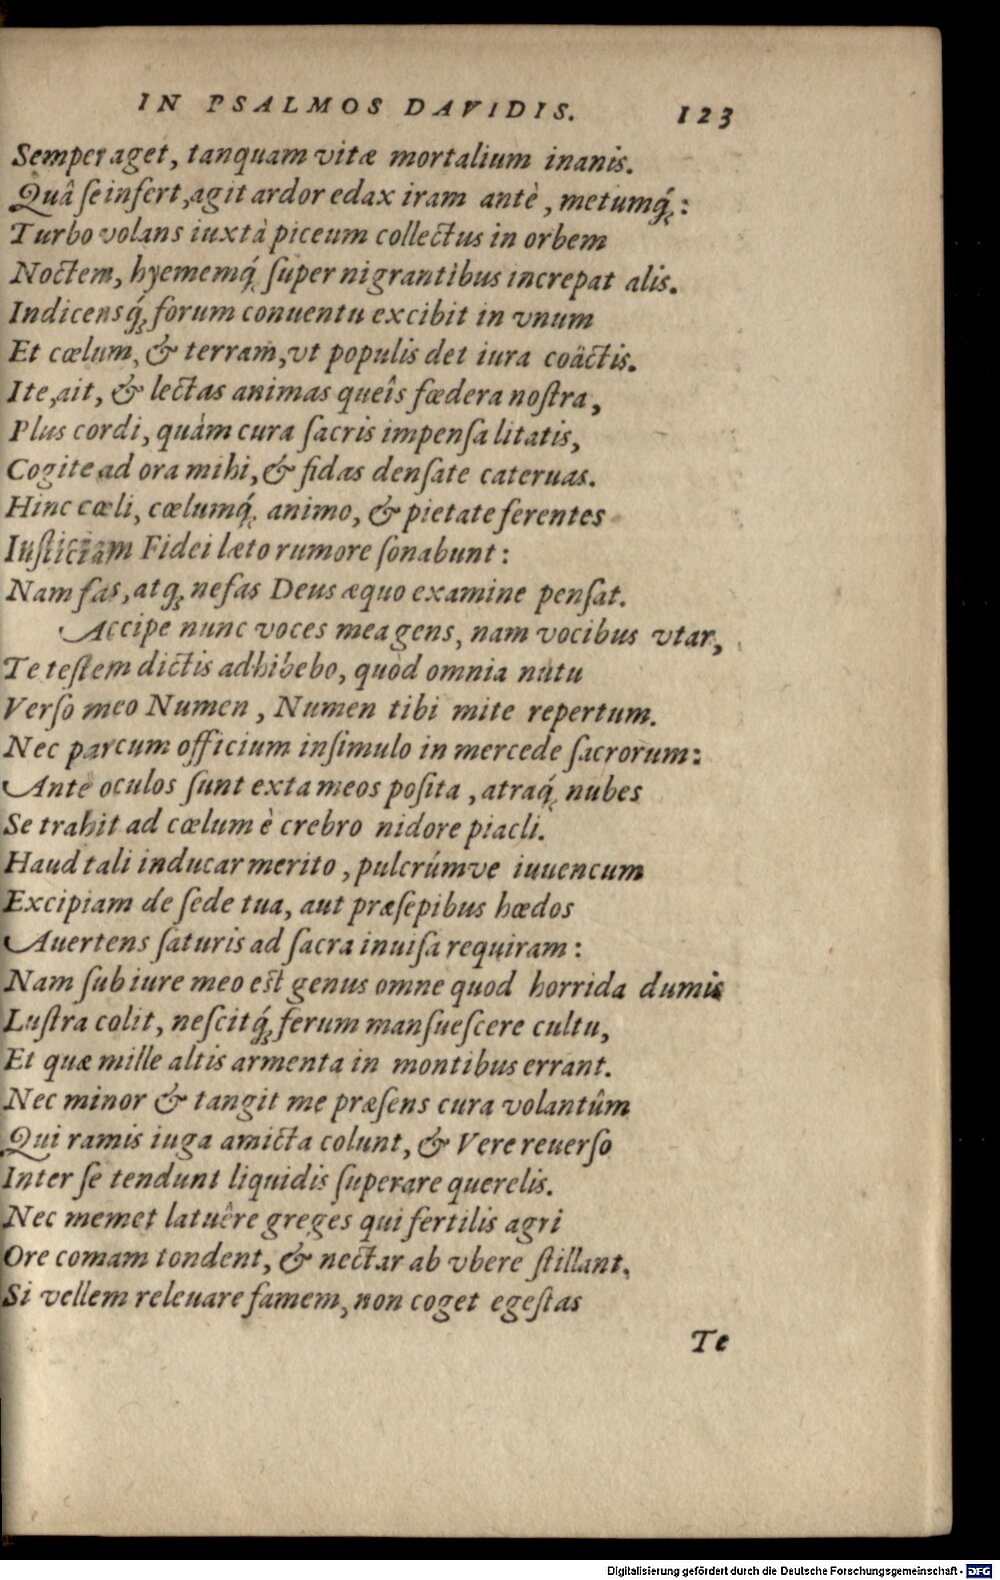 IN PSALMOS DAVIDIS. 123
Semper aget, tanquam vitæ mortalium inanis.
Quâ se infert, agit ardor edax iram antè, metumq́;:
Turbo volans iuxtà piceum collectus in orbem
Noctem, hyememq́; super nigrantibus increpat alis.
Indicensq́; forum conuentu excibit in vnum
Et cœlum, & terram, vt populis det iura coâctis.
Ite, ait, & lectas animas queîs fœdera nostra,
Plus cordi, quàm cura sacris impensa litatis,
Cogite ad ora mihi, & fidas densate cateruas.
Hinc cœli, cœlumq́; animo, & pietate ferentes
Iusticiam Fidei læto rumore sonabunt:
Nam fas, atq; nefas Deus æquo examine pensat.
Accipe nunc voces mea gens, nam vocibus vtar,
Te testem dictis adhibebo, quòd omnia nutu
Verso meo Numen, Numen tibi mite repertum.
Nec parcum officium insimulo in mercede sacrorum:
Ante oculos sunt exta meos posita, atraq́; nubes
Se trahit ad cœlum è crebro nidore piacli.
Haud tali inducar merito, pulcrúmve iuuencum
Excipiam de sede tua, aut præsepibus hœdos
Auertens saturis ad sacra inuisa requiram:
Nam sub iure meo est genus omne quod horrida dumis
Lustra colit, nescitq́; ferum mansuescere cultu,
Et quæ mille altis armenta in montibus errant.
Nec minor & tangit me præsens cura volantûm
Qui ramis iuga amicta colunt, & Vere reuerso
Inter se tendunt liquidis superare querelis.
Nec memet latuêre greges qui fertilis agri
Ore comam tondent, & nectar ab vbere stillant.
Si vellem releuare famem, non coget egestas
Te
Digitalisierung gefördert durch die Deutsche Forschungsgemeinschaft - DFG